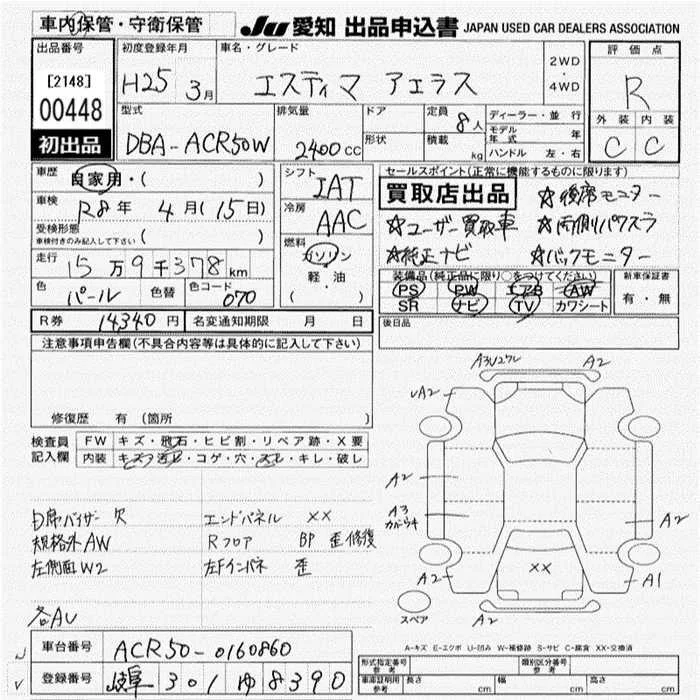 車内保管・守衛保管
JU 愛知 出品申込書 JAPAN USED CAR DEALERS ASSOCIATION
出品番号
[2148]
00448
初出品
初度登録年月
H25 3月
車名・グレード
エスティマ アエラス
2WD
・
4WD
評価点
R
外装 内装
C C
型式
DBA-ACR50W
排気量
2400cc
ドア
形状
定員
8人
積載
kg
ディーラー・並行
モデル年式 年
ハンドル 左・右
車歴
自家用・( )
車検
R8年 4月(15日)
受検形態
車検付きのみ記入して下さい ( )
走行
15万9千378km
色
パール
色替
色コード
070
シフト
IAT
冷房
AAC
燃料
ガソリン
軽・油
( )
セールスポイント(正常に機能するものに限ります)
買取店出品
☆後席モニター
☆ユーザー買取車
☆両側パワスラ
☆純正ナビ
☆バックモニター
装備品(純正品に限り○をつけてください)
PS PW エアB AW
SR ナビ TV カワシート
新車保証書
有・無
後日品
R券 14340円
名変通知期限 月 日
注意事項申告欄(不具合内容等は具体的に記入して下さい)
修復歴 有 (箇所 )
検査員
記入欄
FW キズ・飛石・ヒビ割・リペア跡・X要
内装 キズ・汚レ・コゲ・穴・スレ・キレ・破レ
日席バイザー欠
規格外AW
左側面W2
各AU
エンドパネル XX
Rフロア BP 歪修復
左Fインパネ 歪
A2
A2
A2
A3
A2
A2
A1
XX
A2
スペア
A-キズ E-エクボ U-凹み W-補修跡 S-サビ C-腐食 XX-交換済
車台番号
ACR50-0160860
登録番号
岐阜 301 ゆ 8390
形式指定番号
参考
類別区分番号
車庫証明用
参考
長さ cm
幅 cm
高さ cm